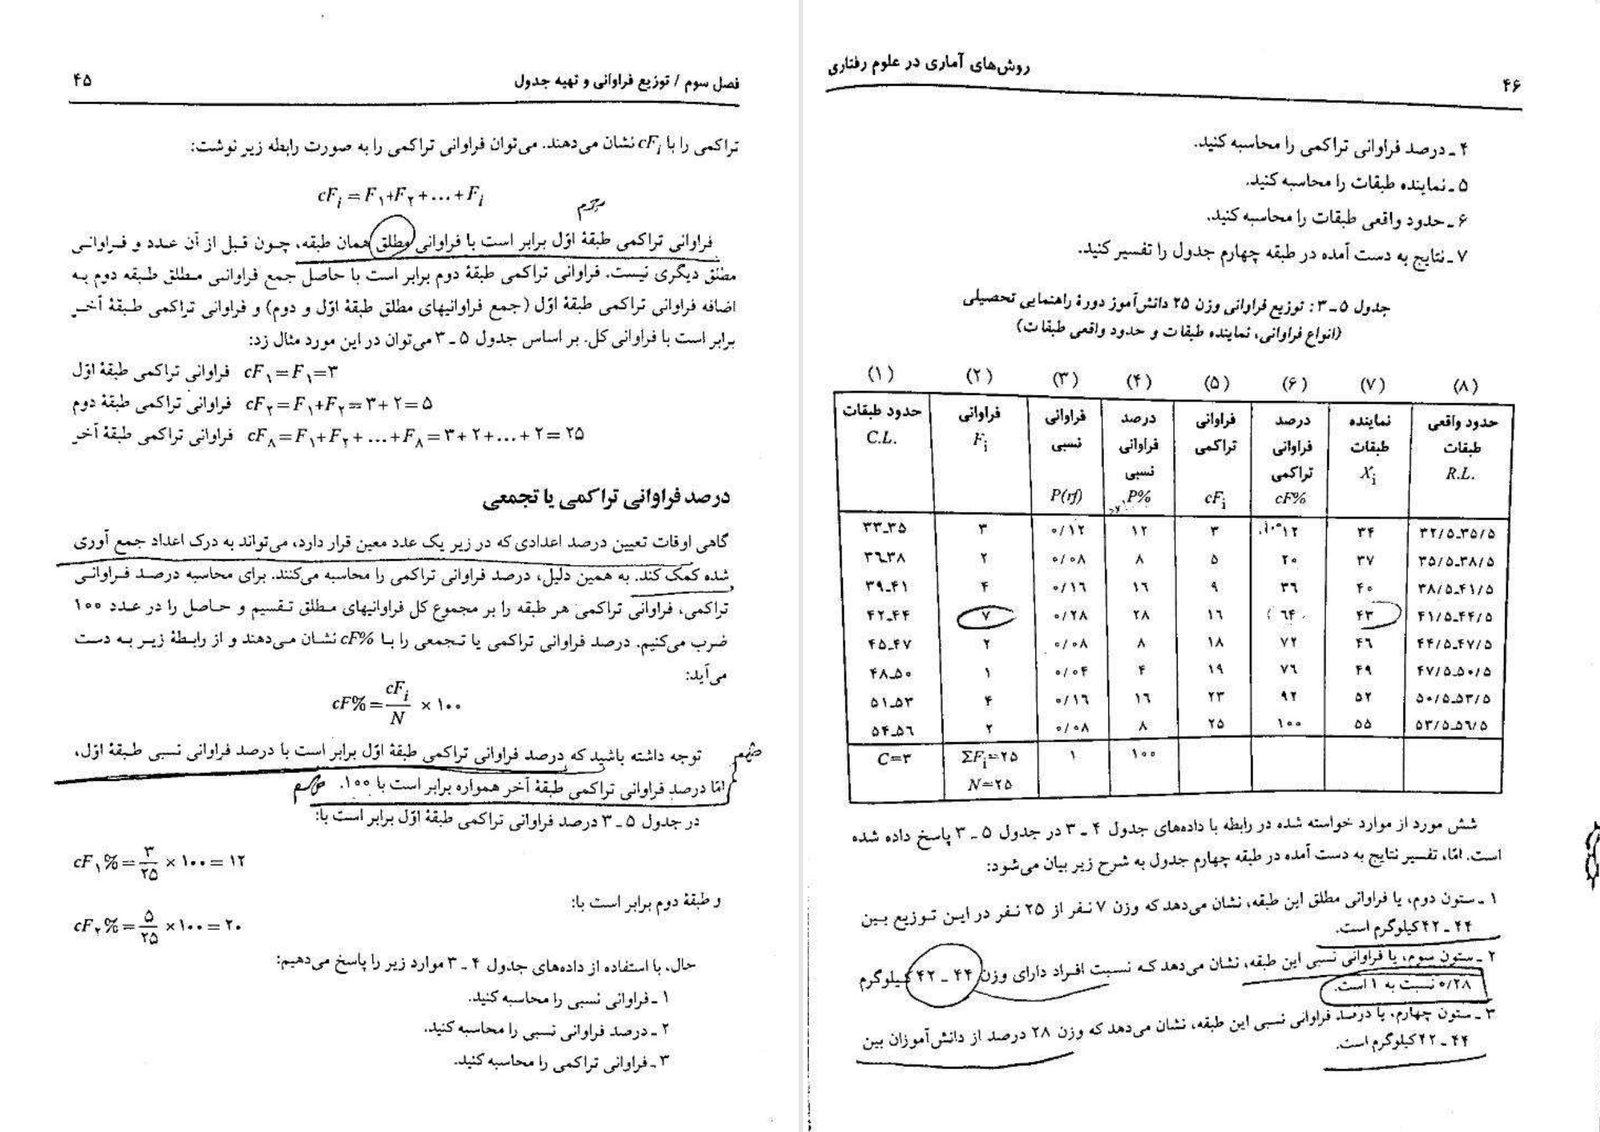 فصل سوم / توزیع فراوانی و تهیه جدول ۴۵
تراکمی را با cFi نشان می‌دهند. می‌توان فراوانی تراکمی را به صورت رابطه زیر نوشت:
cFi = F۱+F۲ + ... + Fi
فراوانی تراکمی طبقهٔ اوّل برابر است با فراوانی مطلق همان طبقه، چون قبل از آن عدد و فراوانی
مطلق دیگری نیست. فراوانی تراکمی طبقهٔ دوم برابر است با حاصل جمع فراوانی مطلق طبقه دوم به
اضافه فراوانی تراکمی طبقهٔ اوّل (جمع فراوانیهای مطلق طبقهٔ اوّل و دوم) و فراوانی تراکمی طبقهٔ آخر
برابر است با فراوانی کل. بر اساس جدول ۵ ـ ۳ می‌توان در این مورد مثال زد:
فراوانی تراکمی طبقهٔ اوّل cF۱ = F۱ = ۳
فراوانی تراکمی طبقهٔ دوم cF۲ = F۱+F۲ = ۳+۲ = ۵
فراوانی تراکمی طبقهٔ آخر cF۸ = F۱+F۲ + ... + F۸ = ۳+۲+...+۲ = ۲۵
درصد فراوانی تراکمی یا تجمعی
گاهی اوقات تعیین درصد اعدادی که در زیر یک عدد معین قرار دارد، می‌تواند به درک اعداد جمع آوری
شده کمک کند. به همین دلیل، درصد فراوانی تراکمی را محاسبه می‌کنند. برای محاسبه درصد فراوانی
تراکمی، فراوانی تراکمی هر طبقه را بر مجموع کل فراوانیهای مطلق تقسیم و حاصل را در عدد ۱۰۰
ضرب می‌کنیم. درصد فراوانی تراکمی یا تجمعی را با cF% نشان می‌دهند و از رابطهٔ زیر به دست
می‌آید:
cF% = cFi / N × ۱۰۰
توجه داشته باشید که درصد فراوانی تراکمی طبقهٔ اوّل برابر است با درصد فراوانی نسبی طبقهٔ اوّل،
امّا درصد فراوانی تراکمی طبقهٔ آخر همواره برابر است با ۱۰۰.
در جدول ۵ ـ ۳ درصد فراوانی تراکمی طبقهٔ اوّل برابر است با:
cF۱% = ۳/۲۵ × ۱۰۰ = ۱۲
و طبقهٔ دوم برابر است با:
cF۲% = ۵/۲۵ × ۱۰۰ = ۲۰
حال، با استفاده از داده‌های جدول ۴ ـ ۳ موارد زیر را پاسخ می‌دهیم:
۱ ـ فراوانی نسبی را محاسبه کنید.
۲ ـ درصد فراوانی نسبی را محاسبه کنید.
۳ ـ فراوانی تراکمی را محاسبه کنید.
روش‌های آماری در علوم رفتاری ۴۶
۴ ـ درصد فراوانی تراکمی را محاسبه کنید.
۵ ـ نماینده طبقات را محاسبه کنید.
۶ ـ حدود واقعی طبقات را محاسبه کنید.
۷ ـ نتایج به دست آمده در طبقه چهارم جدول را تفسیر کنید.
جدول ۵ ـ ۳ : توزیع فراوانی وزن ۲۵ دانش‌آموز دورهٔ راهنمایی تحصیلی
(انواع فراوانی، نماینده طبقات و حدود واقعی طبقات)
(۱) (۲) (۳) (۴) (۵) (۶) (۷) (۸)
حدود طبقات فراوانی فراوانی درصد فراوانی درصد نماینده حدود واقعی
C.L. Fi نسبی فراوانی تراکمی فراوانی طبقات طبقات
نسبی تراکمی Xi R.L.
P(rf) P% cFi cF%
۳۳ـ۳۵ ۳ ۰/۱۲ ۱۲ ۳ ۱۲ ۳۴ ۳۲/۵ـ۳۵/۵
۳۶ـ۳۸ ۲ ۰/۰۸ ۸ ۵ ۲۰ ۳۷ ۳۵/۵ـ۳۸/۵
۳۹ـ۴۱ ۴ ۰/۱۶ ۱۶ ۹ ۳۶ ۴۰ ۳۸/۵ـ۴۱/۵
۴۲ـ۴۴ ۷ ۰/۲۸ ۲۸ ۱۶ ۶۴ ۴۳ ۴۱/۵ـ۴۴/۵
۴۵ـ۴۷ ۲ ۰/۰۸ ۸ ۱۸ ۷۲ ۴۶ ۴۴/۵ـ۴۷/۵
۴۸ـ۵۰ ۱ ۰/۰۴ ۴ ۱۹ ۷۶ ۴۹ ۴۷/۵ـ۵۰/۵
۵۱ـ۵۳ ۴ ۰/۱۶ ۱۶ ۲۳ ۹۲ ۵۲ ۵۰/۵ـ۵۳/۵
۵۴ـ۵۶ ۲ ۰/۰۸ ۸ ۲۵ ۱۰۰ ۵۵ ۵۳/۵ـ۵۶/۵
C=۳ ΣFi=۲۵ ۱ ۱۰۰
N=۲۵
شش مورد از موارد خواسته شده در رابطه با داده‌های جدول ۴ ـ ۳ در جدول ۵ ـ ۳ پاسخ داده شده
است. امّا، تفسیر نتایج به دست آمده در طبقه چهارم جدول به شرح زیر بیان می‌شود:
۱ ـ ستون دوم، یا فراوانی مطلق این طبقه، نشان می‌دهد که وزن ۷ نفر از ۲۵ نفر در این توزیع بین
۴۴ ـ ۴۲ کیلوگرم است.
۲ ـ ستون سوم، یا فراوانی نسبی این طبقه، نشان می‌دهد که نسبت افراد دارای وزن ۴۴ ـ ۴۲ کیلوگرم
۰/۲۸ نسبت به ۱ است.
۳ ـ ستون چهارم، یا درصد فراوانی نسبی این طبقه، نشان می‌دهد که وزن ۲۸ درصد از دانش‌آموزان بین
۴۴ ـ ۴۲ کیلوگرم است.